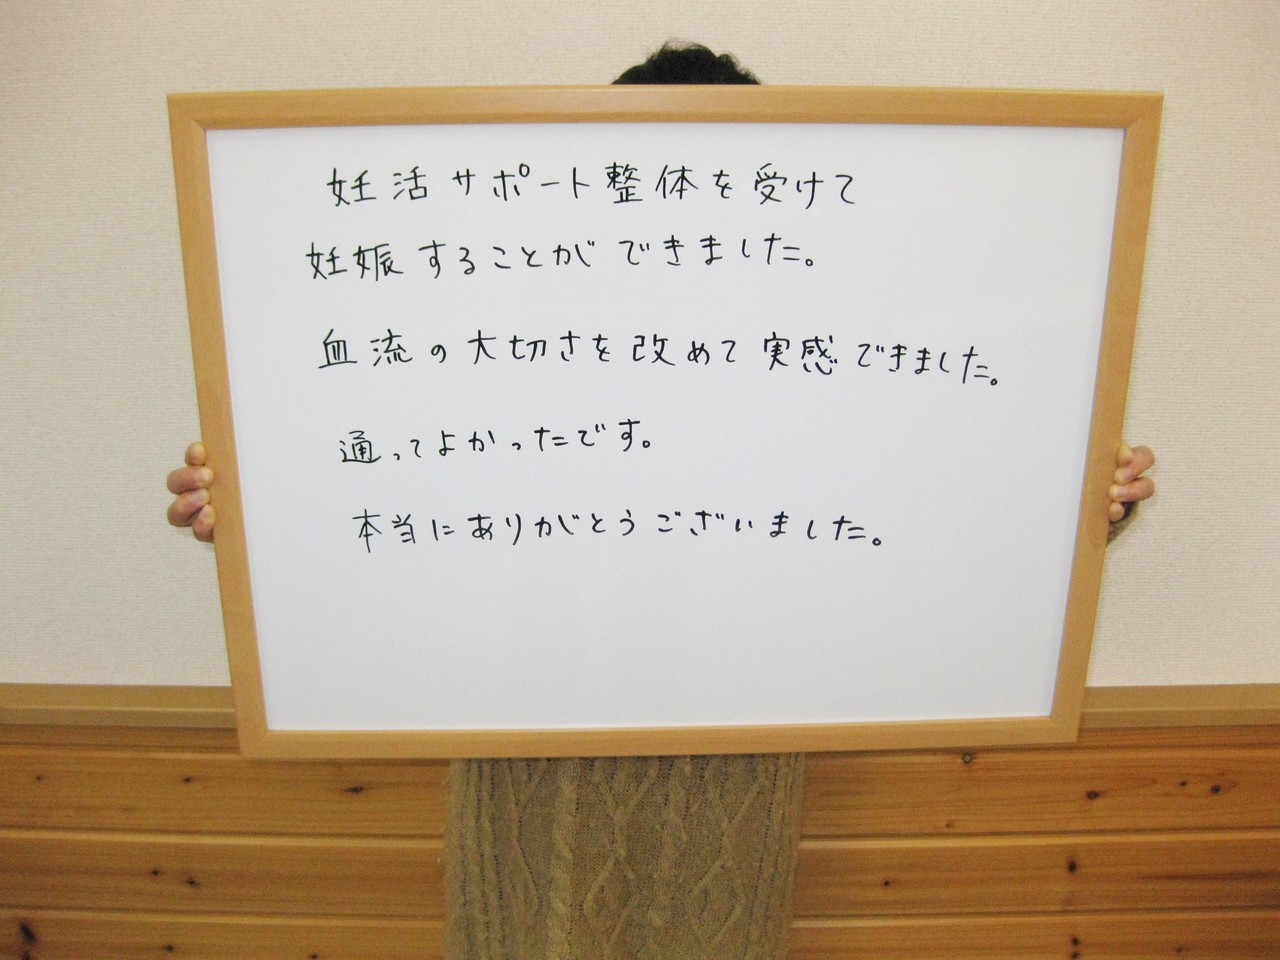 妊活サポート整体を受けて
妊娠することができました。
血流の大切さを改めて実感できました。
通ってよかったです。
本当にありがとうございました。